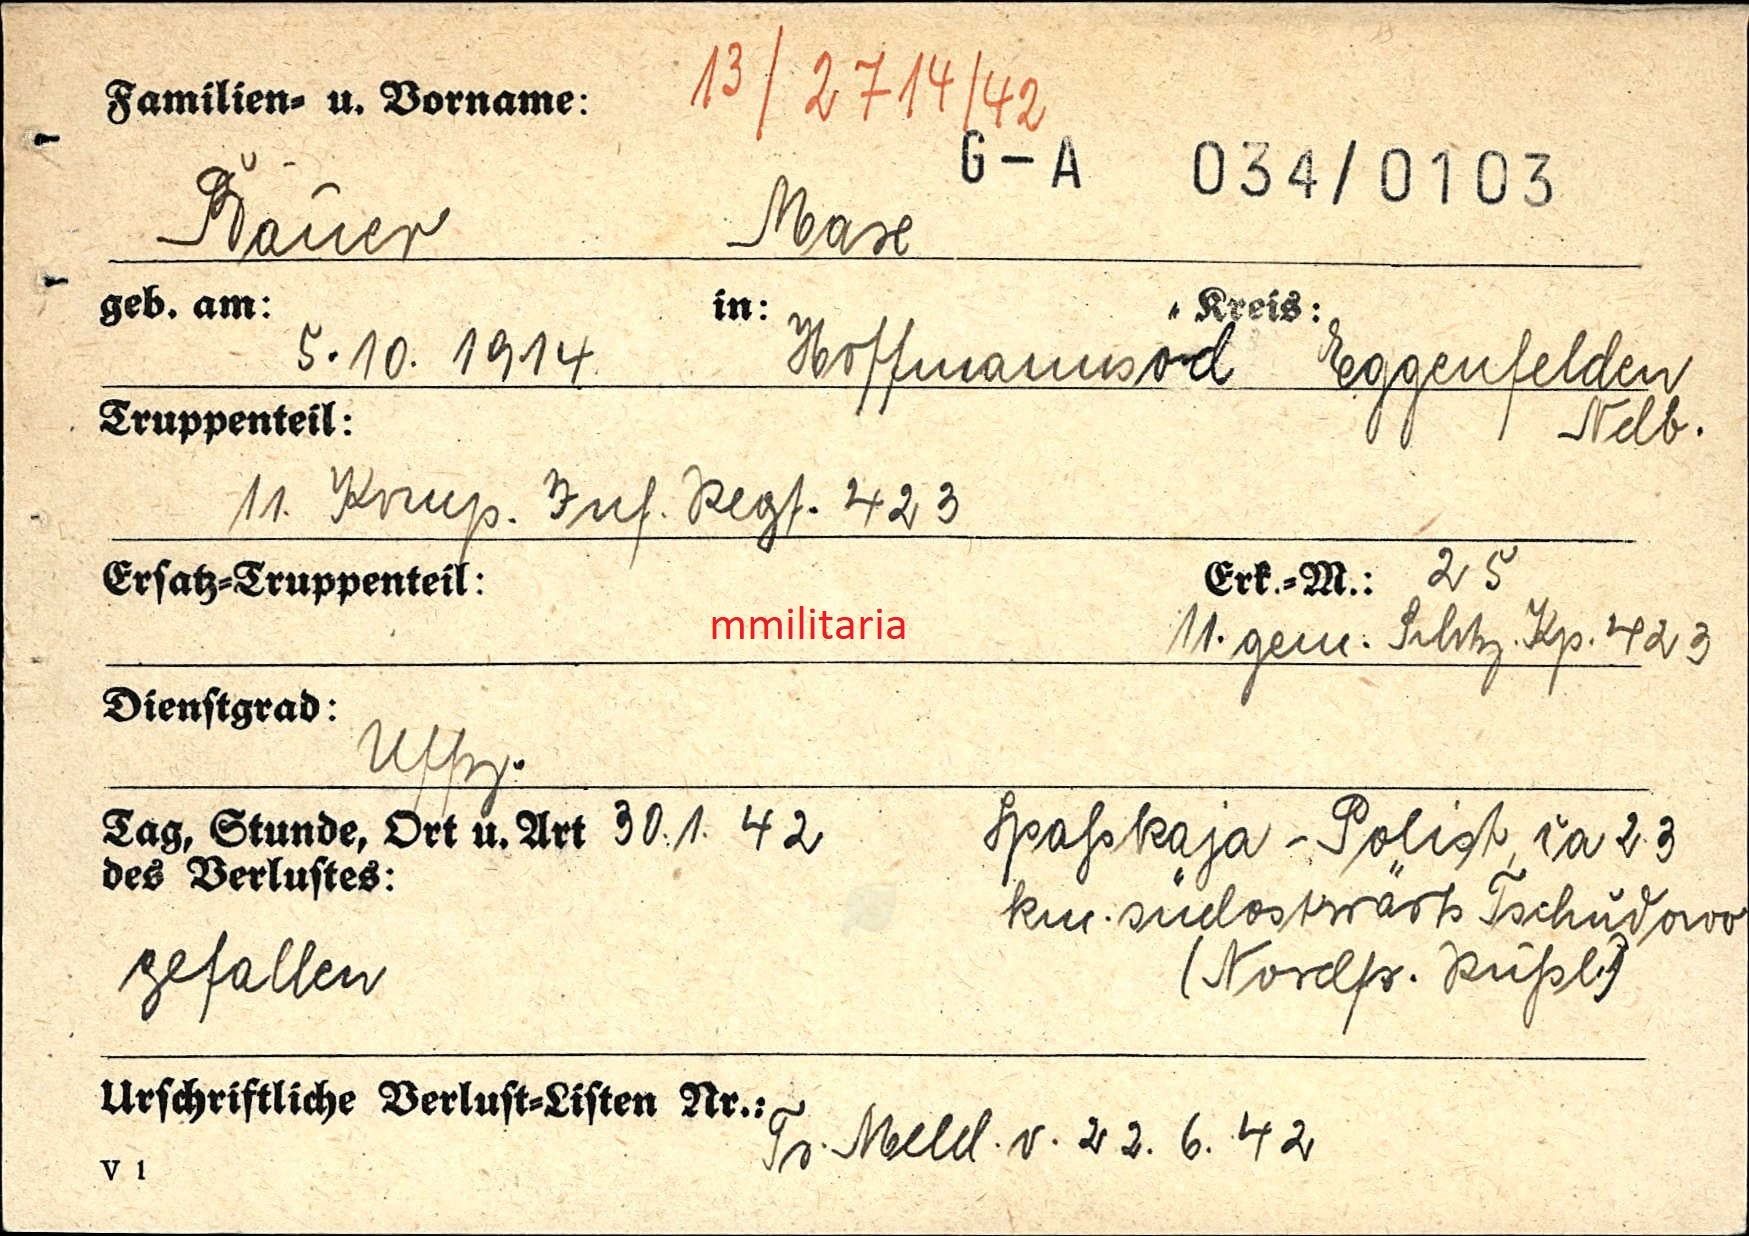 Familien- u. Vorname: 13/2714/42
G-A 034/0103
Bauer Max
geb. am: in: Kreis:
5.10.1914 Hoffmannsöd Eggenfelden
Truppenteil: Ndb.
11. Komp. Inf. Regt. 423
Ersatz-Truppenteil: Erk.-M.: 25
mmilitaria
11. gem. Schtz. Kp. 423
Dienstgrad:
Uffz.
Tag, Stunde, Ort u. Art 30.1.42 Spasskaja-Polist, ca 23
des Verlustes: km. südostwärts Tschudowo
gefallen (Nordfr. Rußl.)
Urschriftliche Verlust-Listen Nr.:
Tr. Meld. v. 22.6.42
V 1